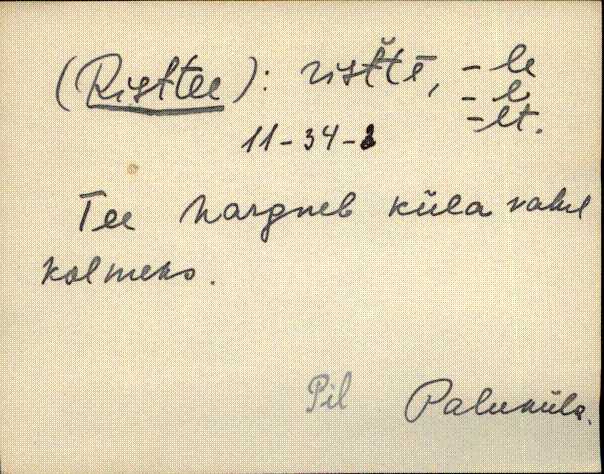 (Risttee): rišt̄t̄ē, -le
-l
-lt.
11-34-2
Tee hargneb küla vahel
kolmeks.
Pil Paluküla.